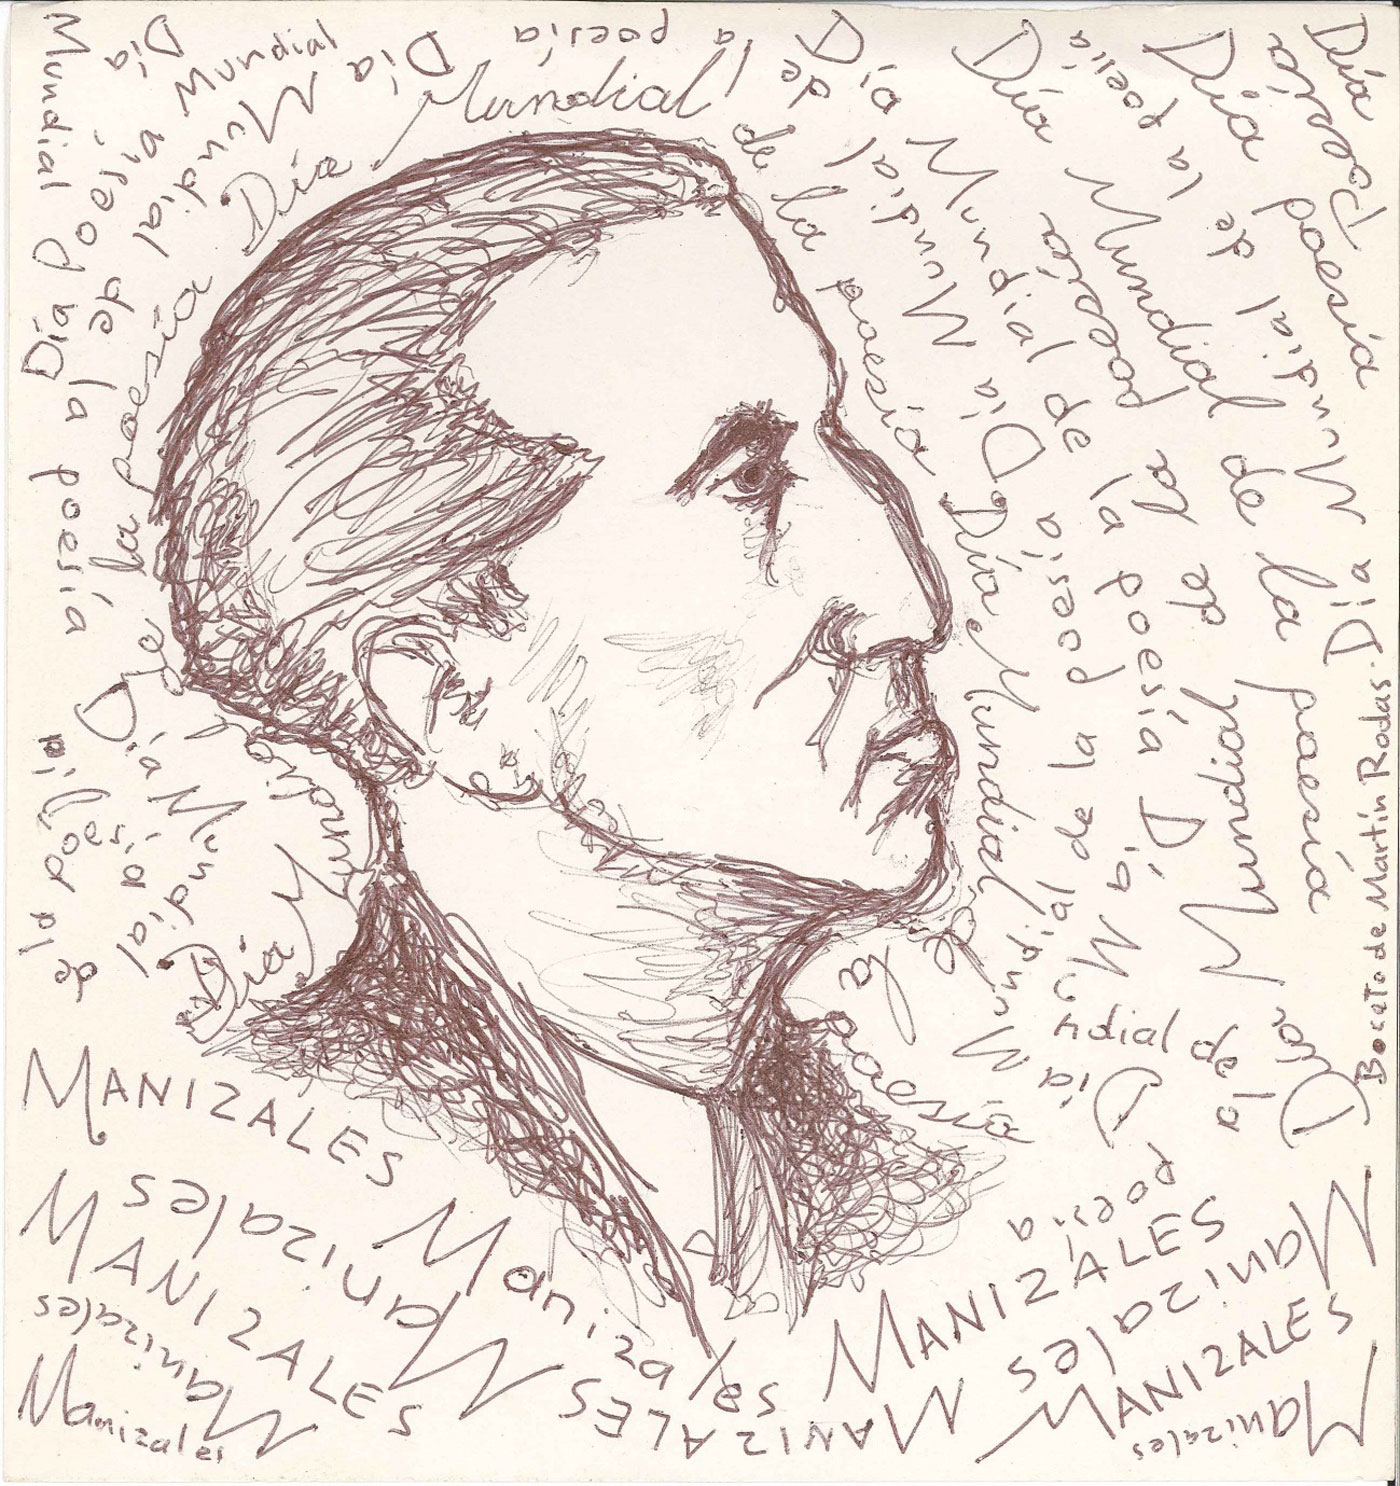 Mundial Día Poesía
Día
Día Poesía
Mundial
Mundial de la poesía
Mundial de la
Día
Día Mundial de la poesía
la poesía
Día Mundial de la poesía
Día Mundial de la poesía
Día Mundial de la poesía
Día Mundial de la poesía
Día poesía
Día poesía
Día Mundial de la poesía
Día Mundial de la poesía
Día Mundial de la poesía
Día Mundial de la poesía
Día Mundial
de la poesía
Día Mundial
Día Mundial
de la poesía
Boceto de Martín Rodas.
MANIZALES
Manizales
MANIZALES
Manizales
Manizales
Manizales
MANIZALES
MANIZALES
Manizales
MANIZALES
Manizales